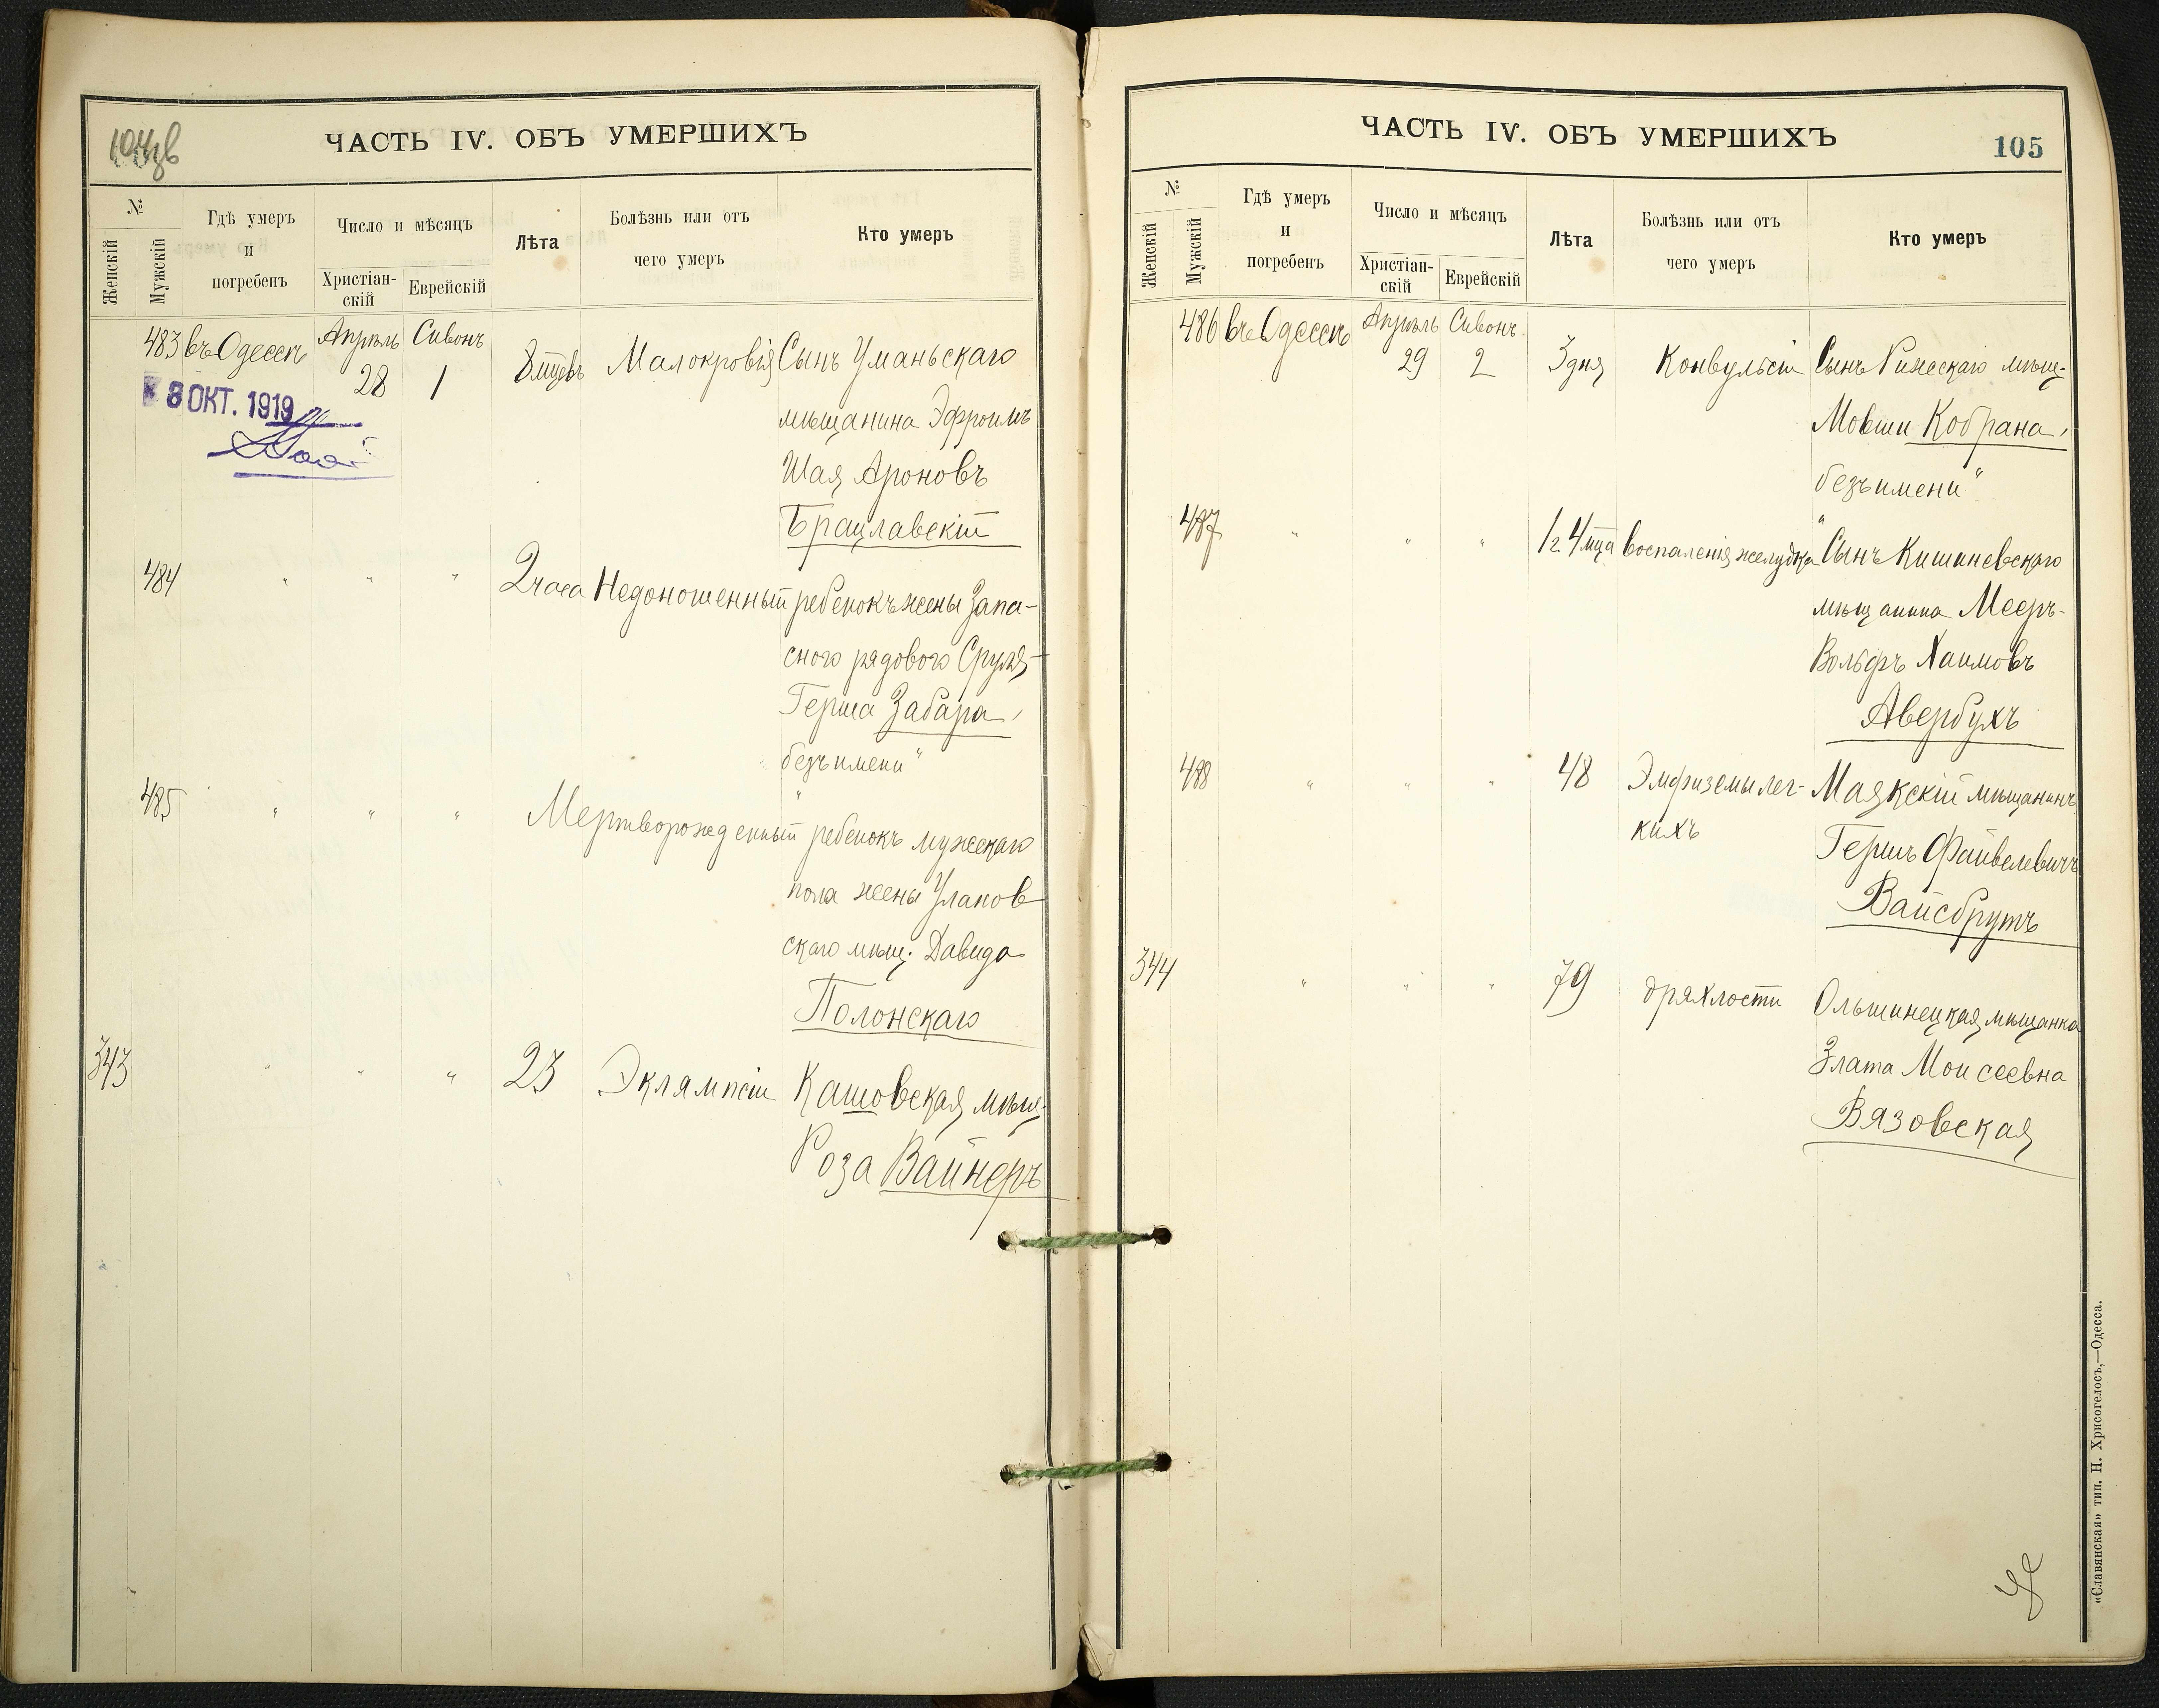 ЧАСТЬ IV. ОБЪ УМЕРШИХЪ
№
Женскій
Мужскій
Гдѣ умеръ
и
погребенъ
Число и мѣсяцъ
Христіан-
скій
Еврейскій
Лѣта
Болѣзнь или отъ
чего умеръ
Кто умеръ
483 въ Одессѣ Апрѣль Сивонъ 8 мцевъ Малокровія Сынъ Уманьскаго
28 1
8 ОКТ. 1919
мѣщанина Эфроимъ
Шая Ароновъ
Брацлавскій
484 " " " 2 часа Недоношенный ребенокъ жены Запа-
сного рядового Сруля-
Герша Забара,
"безъ имени"
485 " " " Мертворожденный ребенокъ мужескаго
пола жены Уланов
скаго мѣщ. Давида
Полонскаго
343 " " " 23 Эклямпсіи Кашовская мѣщ.
Роза Вайнеръ
ЧАСТЬ IV. ОБЪ УМЕРШИХЪ
105
№
Женскій
Мужскій
Гдѣ умеръ
и
погребенъ
Число и мѣсяцъ
Христіан-
скій
Еврейскій
Лѣта
Болѣзнь или отъ
чего умеръ
Кто умеръ
486 въ Одессѣ Апрѣль Сивонъ
29 2 3 дня Конвульсіи Сынъ Рижскаго мѣщ.
Мовши Кобрана,
"безъ имени"
487 " " " 1 г 4 мца воспаленія желудка Сынъ Кишиневскаго
мѣщанина Мееръ-
Вольфъ Хаимовъ
Авербухъ
488 " " " 48 Эмфиземы лег-
кихъ
Маякскій мѣщанинъ
Гершъ Файвелевичъ
Вайсбрутъ
344 " " " 79 дряхлости Ольшинецкая мѣщанка
Злата Моисеевна
Вязовская
«Славянская» тип. Н. Хрисогелосъ,—Одесса.